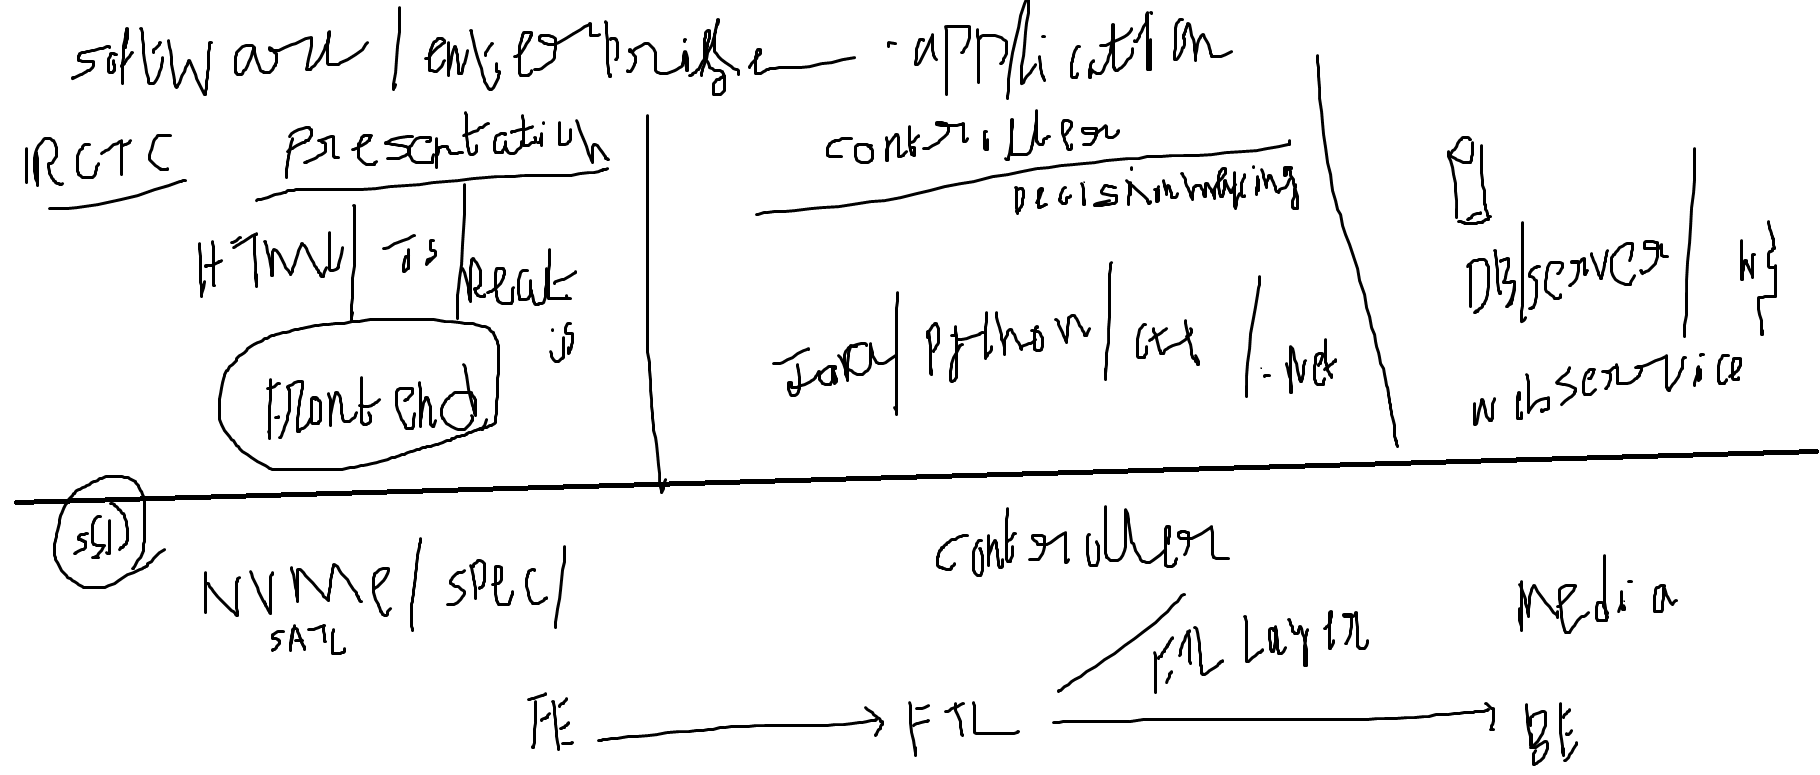 software / enterprise - application
IRCTC
Presentation
HTML | JS | React js
Front end
controller
Decision making
Java / Python / C++ / .Net
DB / server / WS
webservice
SSD
NVMe / spec /
SATL
controller
Media
FTL Layer
FE → FTL → BE